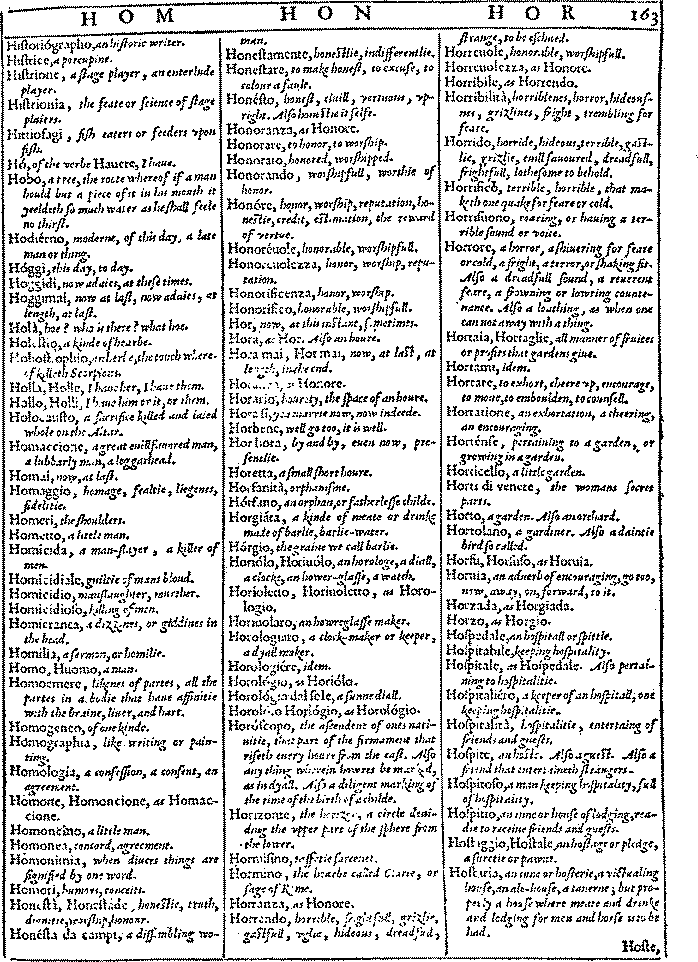 HOM HON HOR 163
Historiógrapho, an historic writer.
Histrice, a porcupine.
Histrione, a stage player, an enterlude
player.
Histrionia, the feate or science of stage
plaiers.
fish eaters or feeders vpon
fish.
Hó, of the verbe Hauere, I haue.
Hobo, a tree, the roote whereof if a man
hould but a piece of it in his mouth it
yeeldeth so much water as he shall feele
no thirst.
Hodiérno, moderne, of this day, a late
man or thing.
Hóggi, this day, to day.
Hoggidi, now adaies, at these times.
Hoggimai, now at last, now adaies, at
length, at last.
Holá, hoe? who is there? what hoe.
a kinde of hearbe.
the touch where-
of killeth Scorpions.
Holla, Holle, I haue her, I haue them.
Hallo, Holli, I haue him or it, or them.
Holocausto, a sacrifice killed and laied
whole on the Altar.
Homaccione, a great euill fauored man,
a lubbarly man, a loggarhead.
Homai, now, at last.
Homaggio, homage, fealtie, liegenes,
fidelitie.
Homeri, the shoulders.
Hometto, a little man.
Homicida, a man-slayer, a killer of
men.
Homicidiale, guiltie of mans bloud.
Homicidio, manslaughter, murther.
Homicidiolo, killing of men.
Homicranea, a dizzines, or giddines in
the head.
Homilia, a sermon, or homilie.
Homo, Huomo, a man.
Homoemere, likenes of partes, all the
partes in a bodie that haue affinitie
with the braine, liuer, and hart.
Homogeneo, of one kinde.
Homographia, like writing or pain-
ting.
Homologia, a confession, a consent, an
agreement.
Homone, Homoncione, as Homac-
cione.
Homoncino, a little man.
Homonea, concord, agreement.
Homonimia, when diuers things are
signified by one word.
Homori, humors, conceits.
Honestá, Honestade, honestie, truth,
worship, honour.
Honésta da campi, a dissembling wo-
man.
Honestamente, honestlie, indifferentlie.
Honestare, to make honest, to excuse, to
colour a fault.
Honésto, honest, ciuill, vertuous, vp-
right. Also honestie it selfe.
Honoranza, as Honore.
Honorare, to honor, to worship.
Honorato, honored, worshipped.
Honorando, worshipfull, worthie of
honor.
Honóre, honor, worship, reputation, ho-
nestie, credit, estimation, the reward
of vertue.
Honoréuole, honorable, worshipfull.
Honoreuolezza, honor, worship, repu-
tation.
Honorificenza, honor, worship.
Honorifico, honorable, worshipfull.
Hor, now, at this instant, sometimes.
Hora, as Hor. Also an houre.
Hora mai, Hor mai, now, at last, at
length, in the end.
as Honore.
Horario, hourely, the space of an houre.
now, now indeede.
Horbene, well go too, it is well.
Hor hora, by and by, euen now, pre-
sentlie.
Horetta, a small short houre.
Horfanità, orphanisme.
Hórfano, an orphan, or fatherlesse childe.
Horgiáta, a kinde of meate or drinke
made of barlie, barlie-water.
Hórgio, the graine we call barlie.
Horiólo, Horiuólo, an horologe, a diall,
a clocke, an hower-glasse, a watch.
Horioletto, Horiuoletto, as Horo-
logio.
Horiuolaro, an howreglasse maker.
Horologiaro, a clock-maker or keeper,
a dyall maker.
Horologiére, idem.
Horológio, as Horiólo.
Horológio dal sole, a sunne diall.
Horologio Horlógio, as Horológio.
Horóscopo, the ascendent of ones nati-
uitie, that part of the firmament that
riseth euery houre from the east. Also
any thing wherein howres be marked,
as in dyall. Also a diligent marking of
the time of the birth of a childe.
Horizonte, the horizon, a circle deui-
ding the vpper part of the sphere from
the lower.
Hormisino, sarcenet.
Hormino, the hearbe called Clarie, or
sage of Rome.
Horranza, as Honore.
Horrando, horrible, frightfull, grizlie,
gastfull, vglie, hideous, dreadfull,
strange, to be eschued.
Horreuole, honorable, worshipfull.
Horreuolezza, as Honore.
Horribile, as Horrendo.
Horribilità, horriblenes, horror, hideous-
nes, grizlines, fright, trembling for
feare.
Horrido, horride, hideous, terrible, gast-
lie, grizlie, euill fauoured, dreadfull,
frightfull, lothesome to behold.
Horrifico, terrible, horrible, that ma-
keth one quake for feare or cold.
Horrisuono, roaring, or hauing a ter-
rible sound or voice.
Horrore, a horror, a shiuering for feare
or cold, a fright, a terror, or shaking fit.
Also a dreadfull sound, a reuerent
feare, a frowning or lowring counte-
nance. Also a loathing, as when one
can not away with a thing.
Hortaia, Hortaglie, all manner of fruites
or profits that gardens giue.
Hortami, idem.
Hortare, to exhort, cheere vp, encourage,
to moue, to embolden, to counsell.
Hortatione, an exhortation, a cheering,
an encouraging.
Horténse, pertaining to a garden, or
growing in a garden.
Horticello, a little garden.
Horti di venere, the womans secret
parts.
Horto, a garden. Also an orchard.
Hortolano, a gardiner. Also a daintie
bird so called.
Horsu, Horsuso, as Horuia.
Horuia, an aduerb of encouraging, go too,
now, away, on, forward, to it.
Horzada, as Horgiada.
Horzo, as Horgio.
Hospedale, an hospitall or spittle.
Hospitabile, keeping hospitality.
Hospitale, as Hospedale. Also pertai-
ning to hospitalitie.
Hospitaliéro, a keeper of an hospitall, one
keeping hospitalitie.
Hospitalità, hospitalitie, entertaing of
friends and guests.
Hospite, an hoste. Also a guest. Also a
friend that entertaineth strangers.
Hospitoso, a man keeping hospitality, full
of hospitality.
Hospitio, an inne or house of lodging, rea-
die to receiue friends and guests.
Hostaggio, Hostale, an hostage or pledge,
a suretie or pawne.
Hostaria, an inne or hosterie, a victualing
house, an ale-house, a tauerne; but pro-
perly a house where meate and drinke
and lodging for men and horse is to be
had.
Hoste,